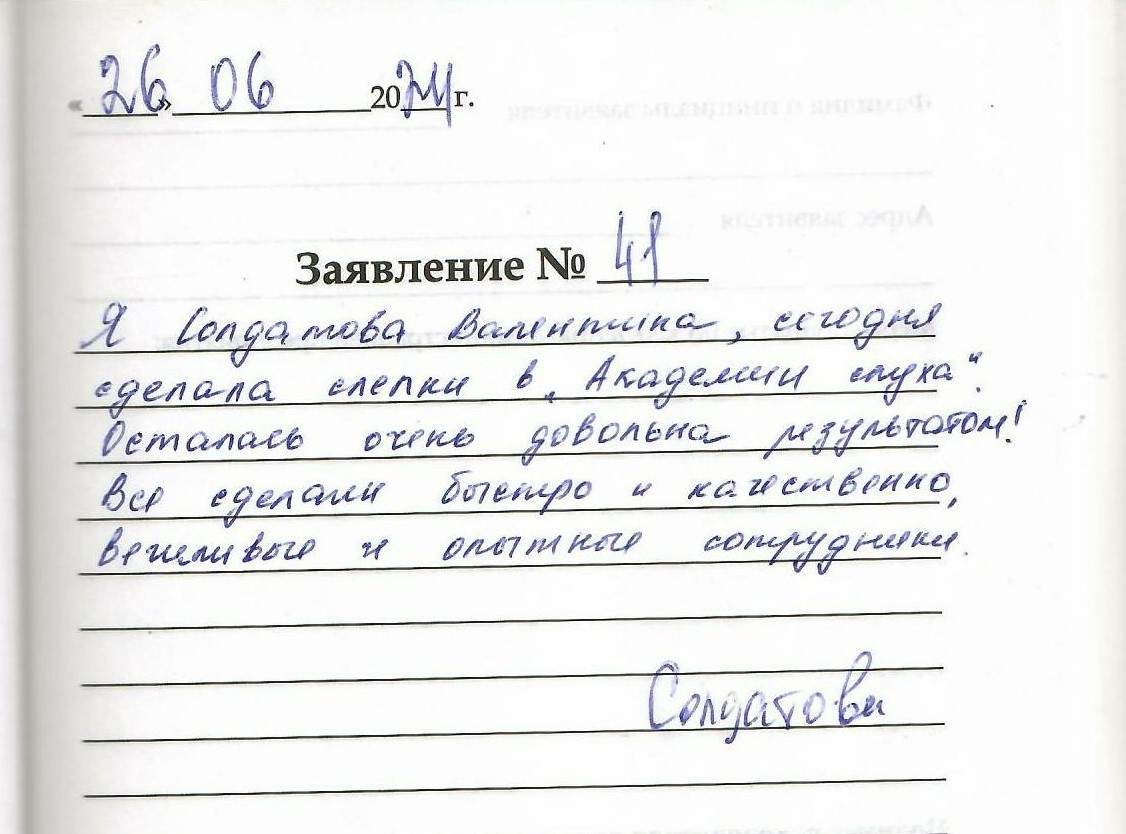 «26» 06 2024 г.
Заявление № 41
Я Солдатова Валентина, сегодня
сделала слепки в „Академии слуха“.
Осталась очень довольна результатом!
Все сделали быстро и качественно,
вежливые и опытные сотрудники.
Солдатова